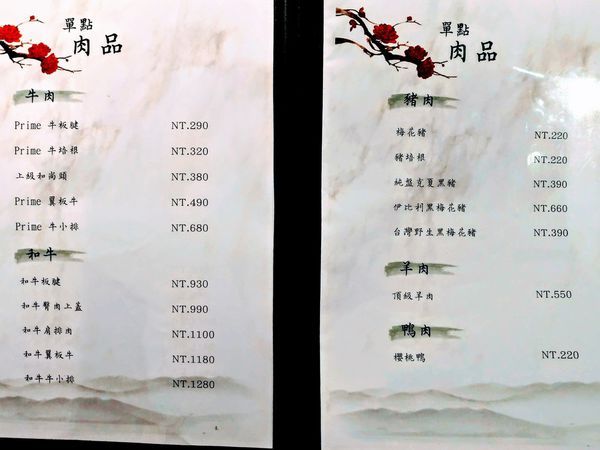 單點
肉品
牛肉
Prime 牛板腱 NT.290
Prime 牛培根 NT.320
上級和尚頭 NT.380
Prime 翼板牛 NT.490
Prime 牛小排 NT.680
和牛
和牛板腱 NT.930
和牛臀肉上蓋 NT.990
和牛肩排肉 NT.1100
和牛翼板牛 NT.1180
和牛牛小排 NT.1280
單點
肉品
豬肉
梅花豬 NT.220
豬培根 NT.220
純盤克夏黑豬 NT.390
伊比利黑梅花豬 NT.660
台灣野生黑梅花豬 NT.390
羊肉
頂級羊肉 NT.550
鴨肉
櫻桃鴨 NT.220